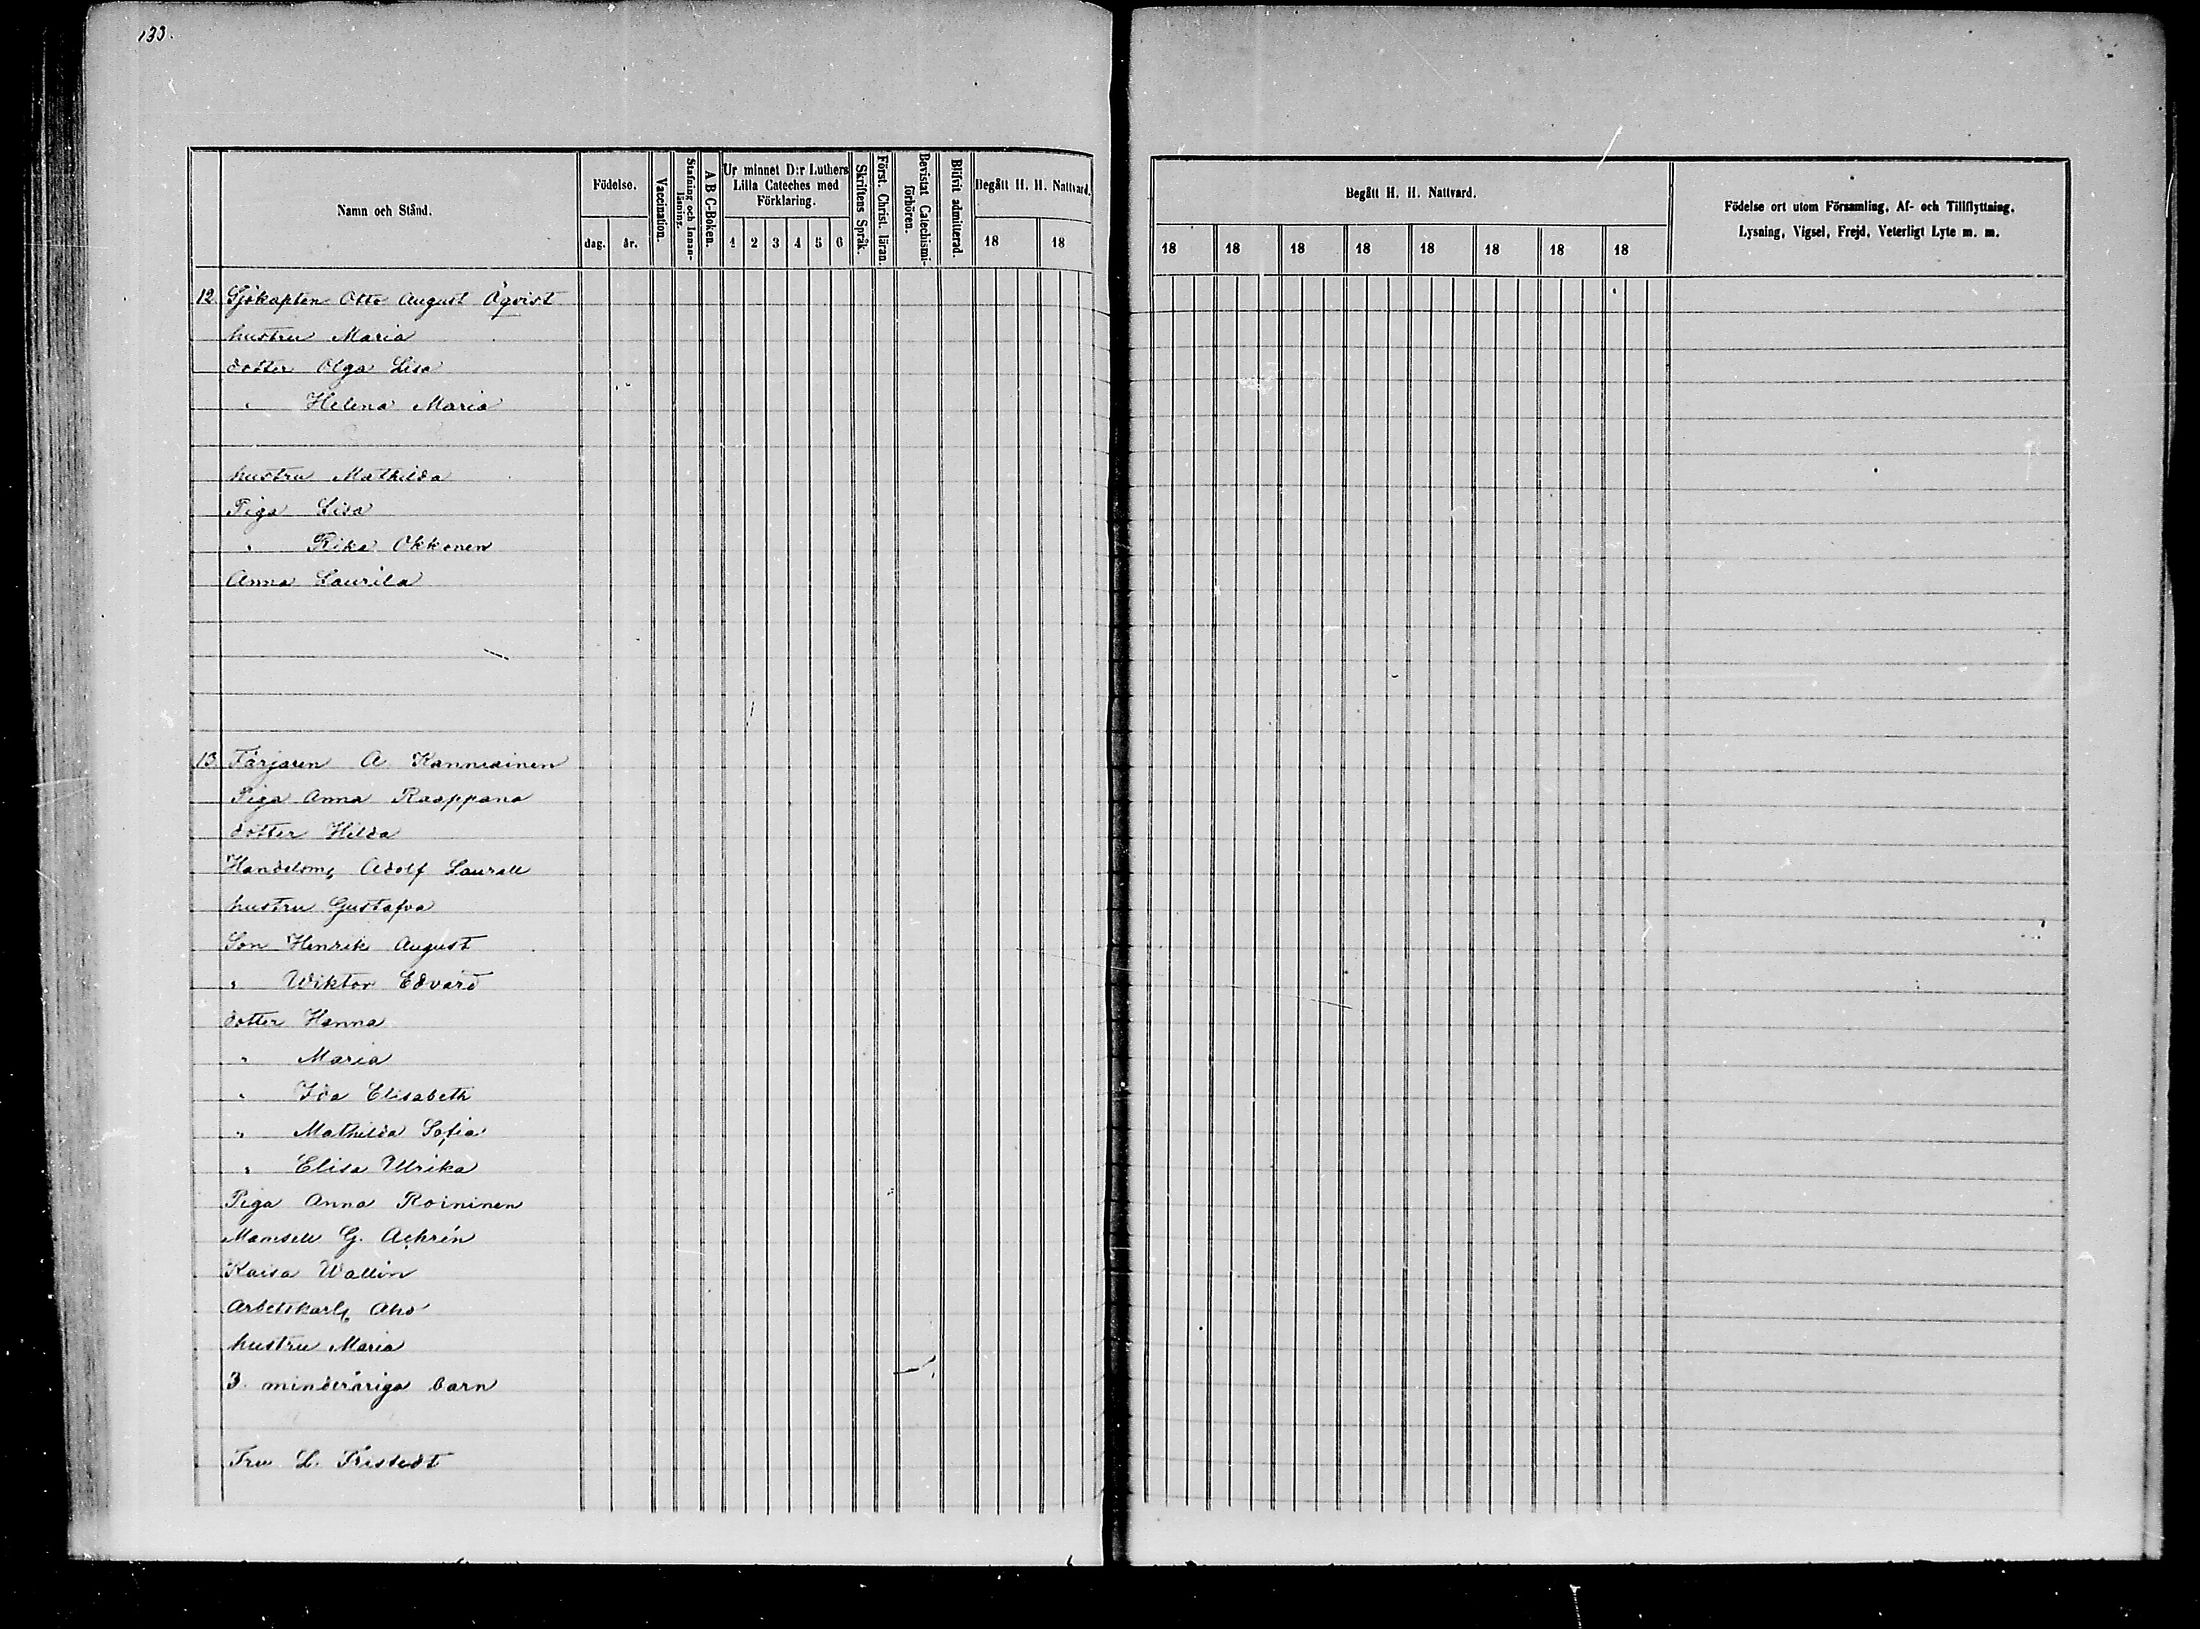 133.
Namn och Stånd.
Födelse.
dag.
år.
Vaccination.
Stafning och Innan-
läsning.
A B C-Boken.
Ur minnet D:r Luthers
Lilla Cateches med
Förklaring.
1 2 3 4 5 6
Skriftens Språk.
Först. Christ. läran.
Bevistat Catechismi-
förhören.
Blifvit admitterad.
Begått H. H. Nattvard.
18 18
Begått H. H. Nattvard.
18 18 18 18 18 18 18 18
Födelse ort utom Församling, Af- och Tillflyttning,
Lysning, Vigsel, Frejd, Veterligt Lyte m. m.
12. Sjökapten Otto August Åqvist
hustru Maria
dotter Olga Lisa
" Helena Maria
hustru Mathilda
Piga Lisa
" Rika Okkonen
Anna Laurila
13. Färjaren A Kanniainen
Piga Anna Raappana
dotter Hilda
Handelsm, Adolf Laurell
hustru Gustafva
Son Henrik August
" Wiktor Edvard
dotter Hanna
" Maria
" Ida Elisabeth
" Mathilda Sofia
" Elisa Ullrika
Piga Anna Roininen
Mamsell G. Achrén
Kaisa Wallin
Arbetskarl Aho
hustru Maria
3. minderåriga barn
Fru L. Fristedt